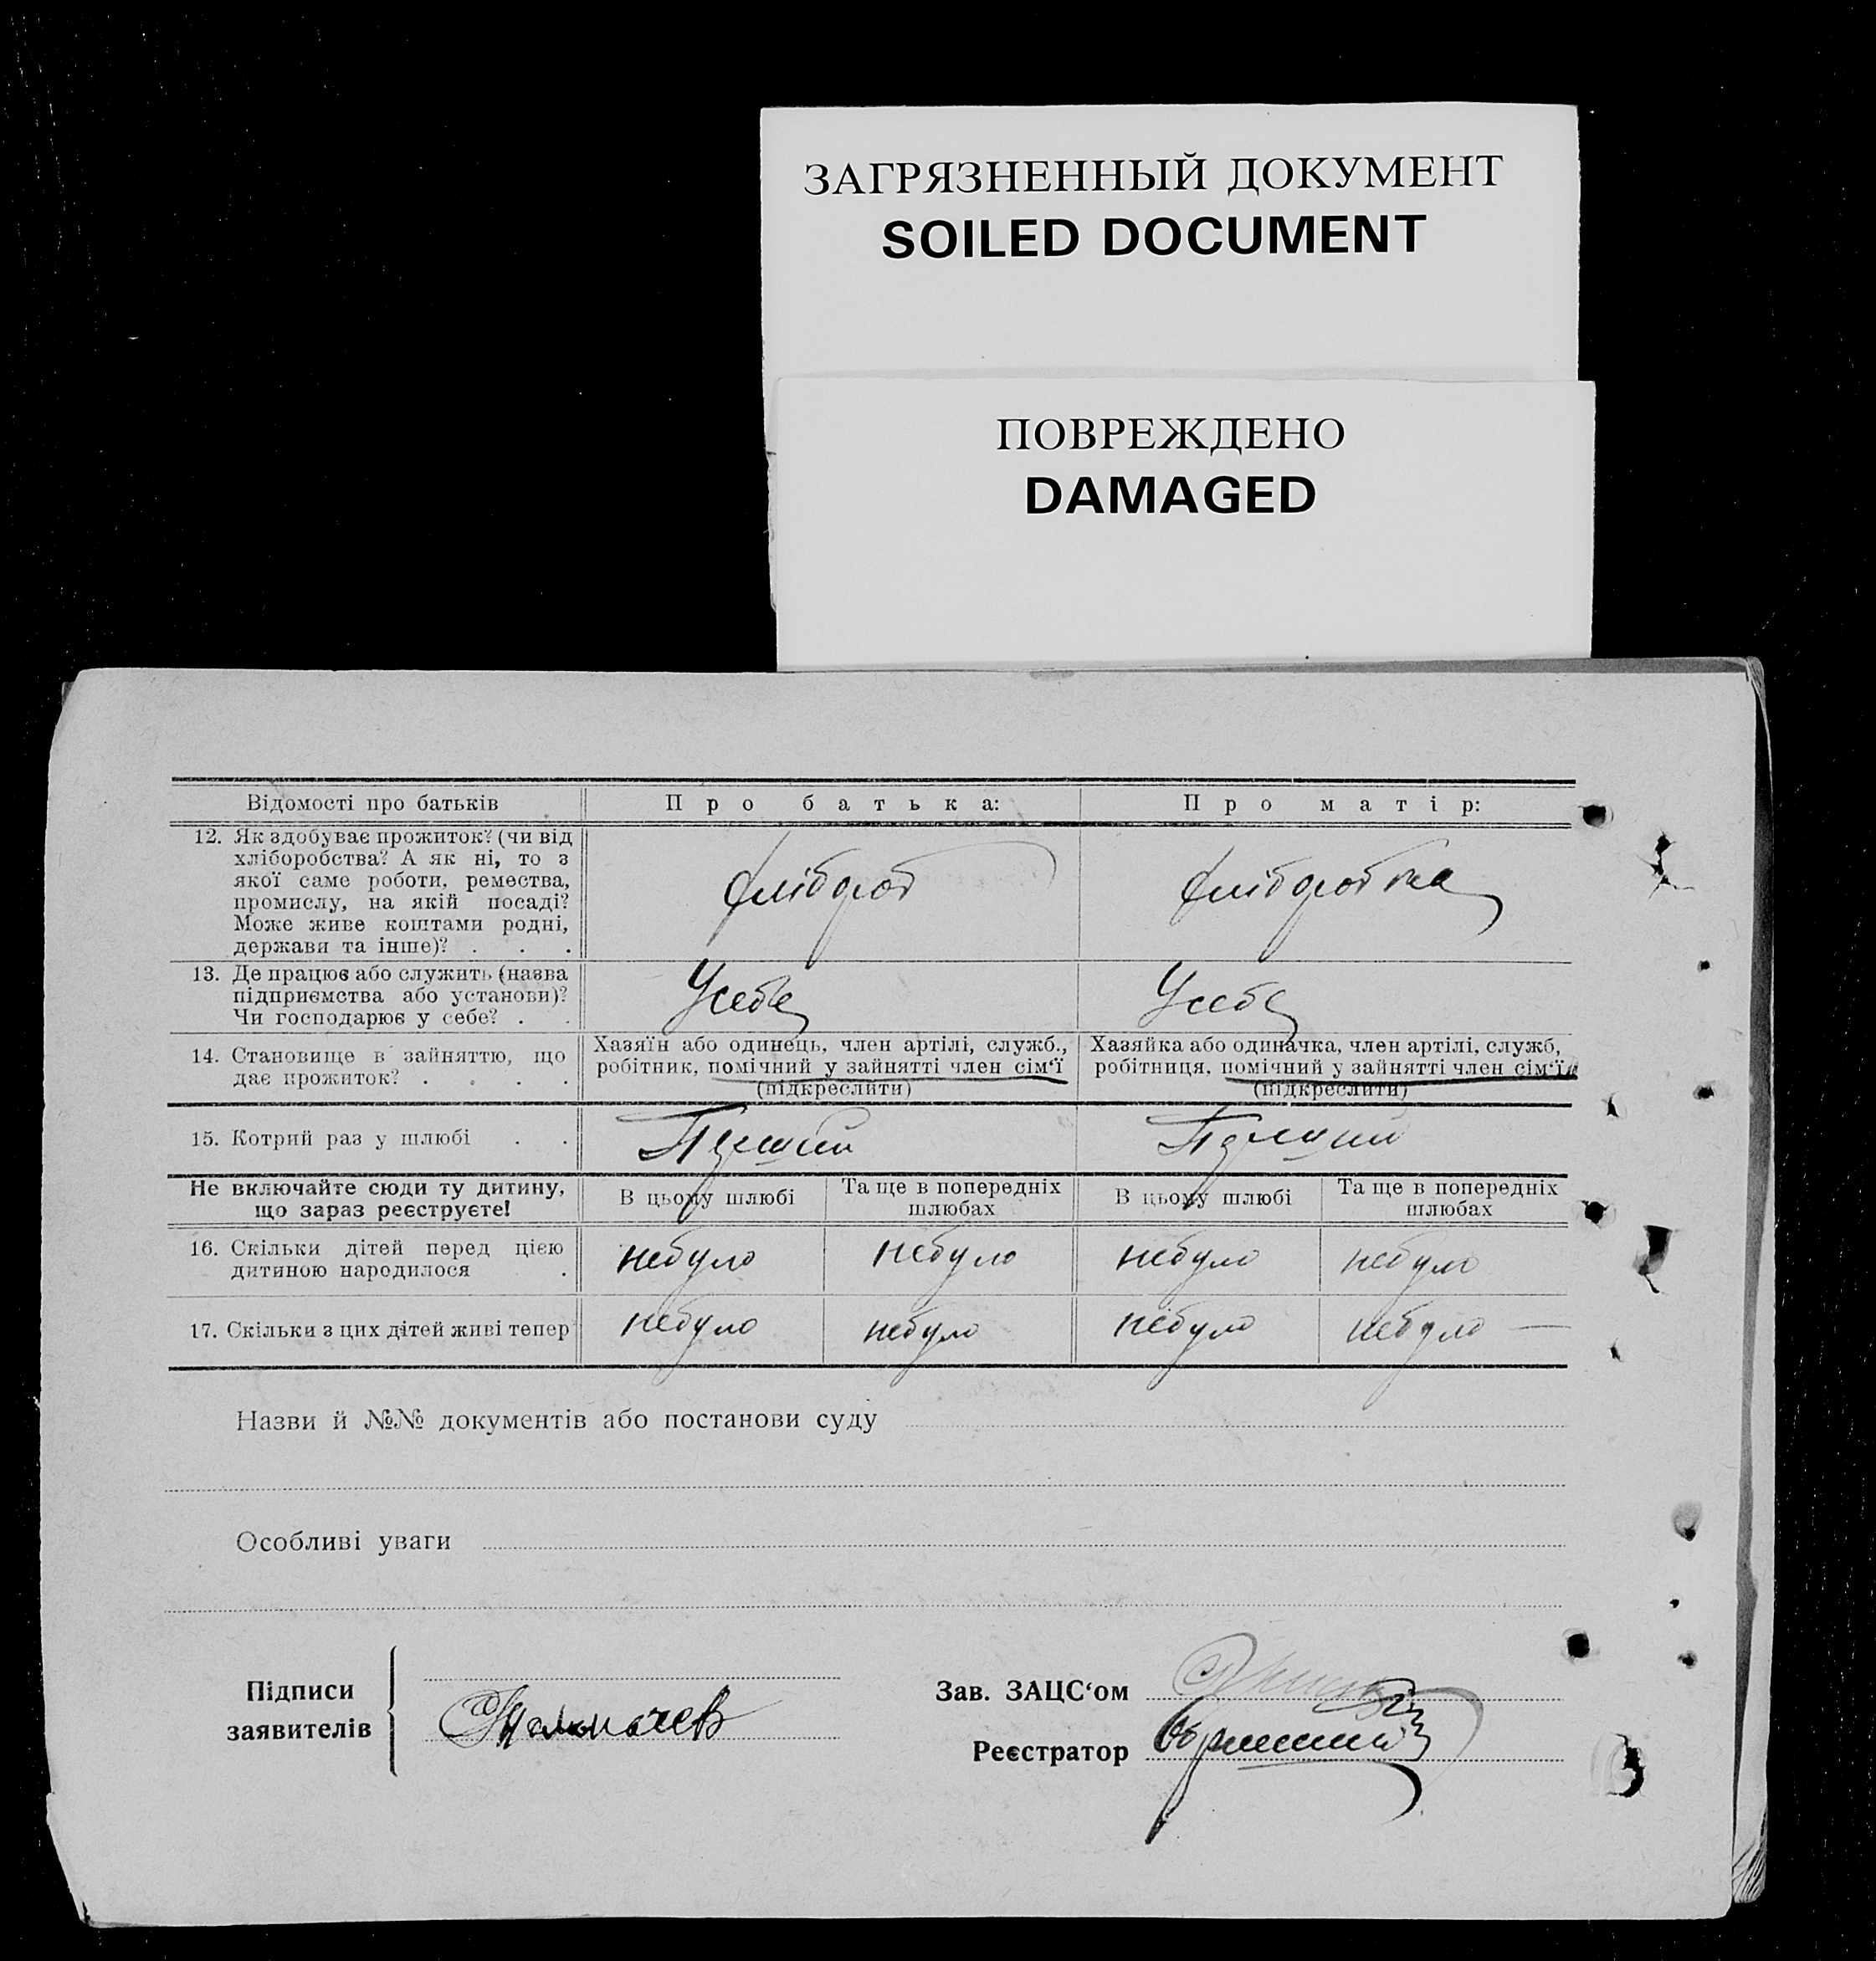 ЗАГРЯЗНЕННЫЙ ДОКУМЕНТ
SOILED DOCUMENT
ПОВРЕЖДЕНО
DAMAGED
Відомості про батьків
Про батька:
Про матір:
12. Як здобуває прожиток? (чи від
хліборобства? А як ні, то з
якої саме роботи, ремества,
промислу, на якій посаді?
Може живе коштами родні,
держави та інше)? . . .
хлібороб
хліборобка
13. Де працює або служить (назва
підприємства або установи)?
Чи господарює у себе? . .
Усебе
Усебе
14. Становище в зайняттю, що
дає прожиток? . . . .
Хазяїн або одинець, член артілі, служб.,
робітник, помічний у зайнятті член сім‘ї
(підкреслити)
Хазяйка або одиначка, член артілі, служб,
робітниця, помічний у зайнятті член сім‘ї
(підкреслити)
15. Котрий раз у шлюбі . .
Перший
Перший
Не включайте сюди ту дитину,
що зараз реєструєте!
В цьому шлюбі
Та ще в попередніх
шлюбах
В цьому шлюбі
Та ще в попередніх
шлюбах
16. Скільки дітей перед цією
дитиною народилося .
небуло
небуло
небуло
небуло
17. Скільки з цих дітей живі тепер
небуло
небуло
небуло
небуло —
Назви й №№ документів або постанови суду
Особливі уваги
Підписи
заявителів
Зав. ЗАЦС‘ом
Реєстратор